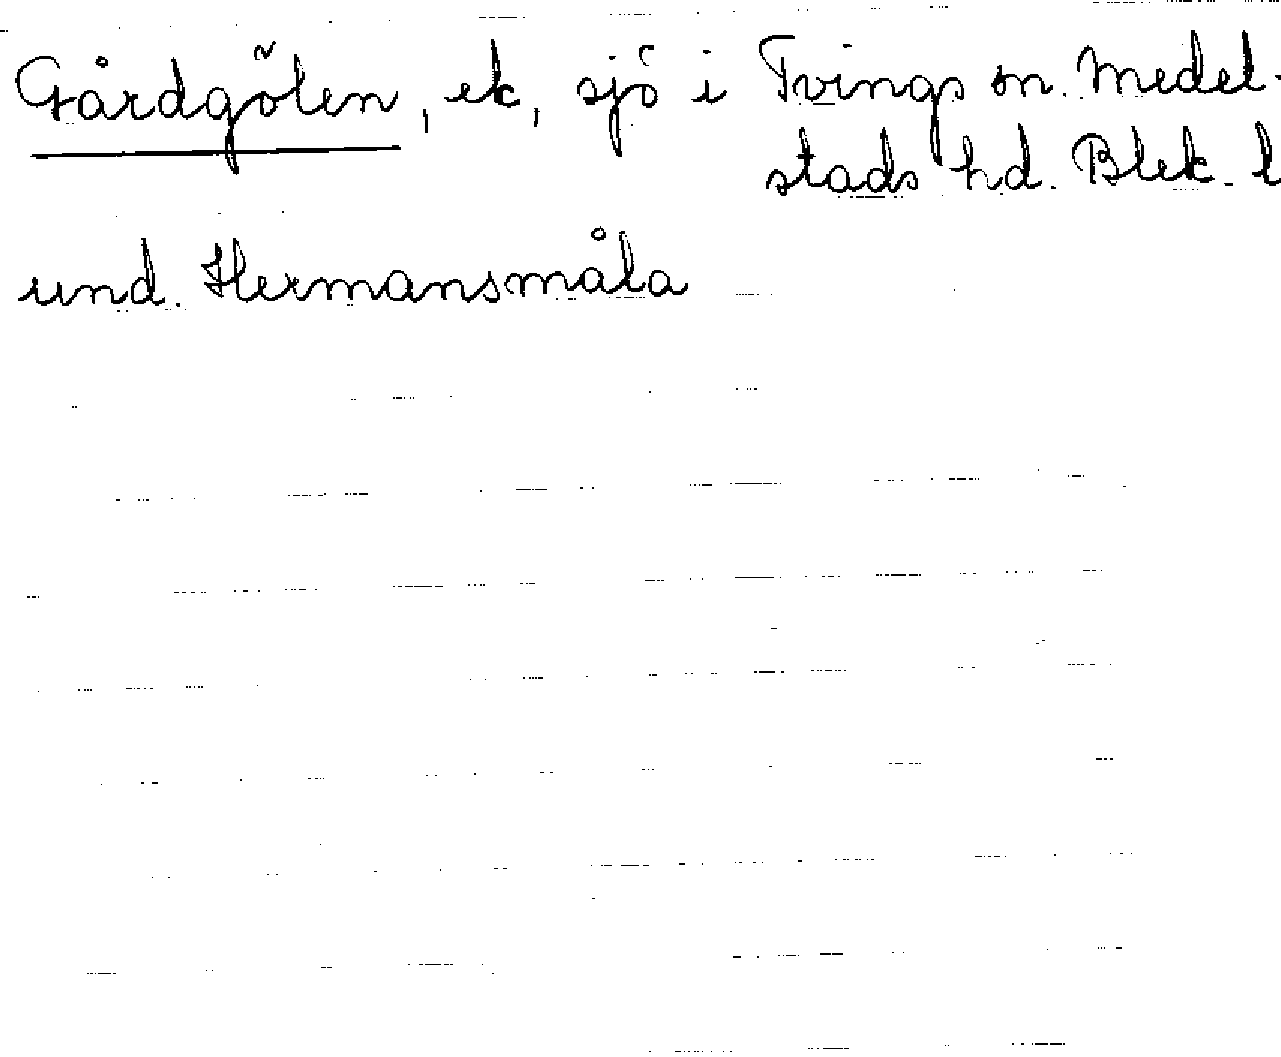 Gårdgölen, ek, sjö i Tvings sn. Medel-
stads hd. Blek. l
und. Hermansmåla